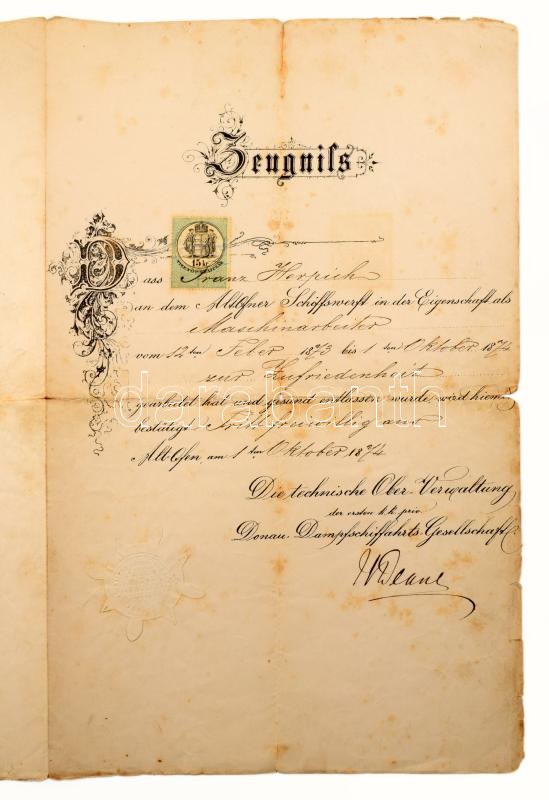 Zeugniß
15 kr
Dass Franz Herpich
an dem Altofner Schiffswerft in der Eigenschaft als
Maschinarbeiter
vom 12ten Feber 1873 bis 1ten Oktober 1874
zur Zufriedenheit
gearbeitet hat und gesund entlassen wurde, wird hiemit
bestätigt. Tritt freiwillig aus
Altofen, am 1ten Oktober 1874
Die technische Ober-Verwaltung
der ersten k.k. priv.
Donau-Dampfschiffahrts-Gesellschaft
darabanth